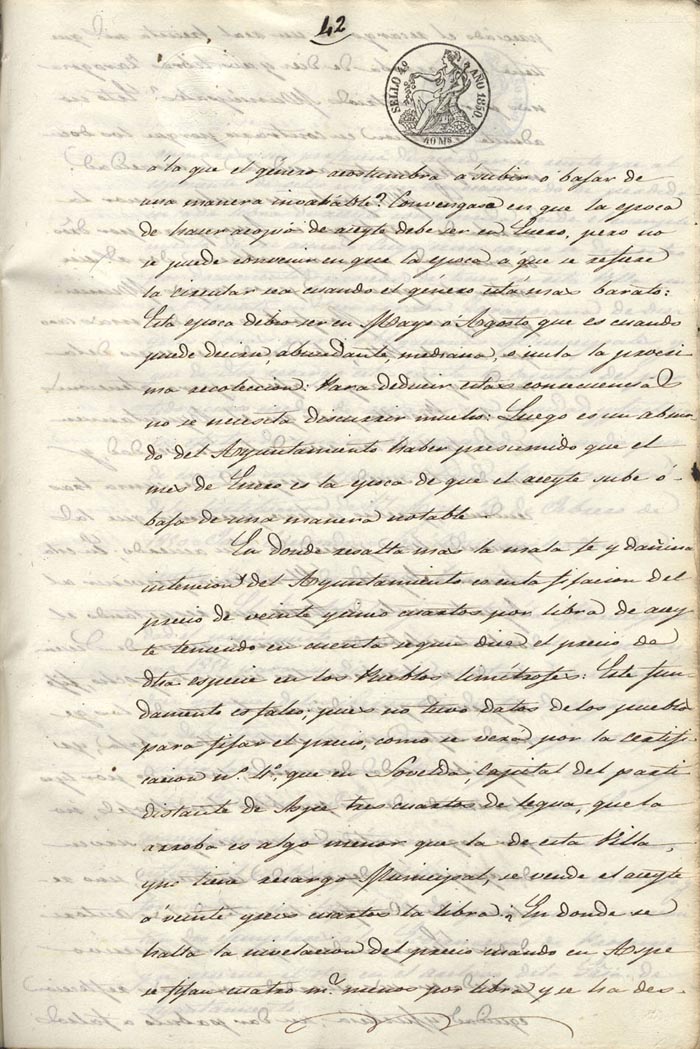 42
SELLO 4º AÑO 1850.
40 Ms
á la que el género acostumbra á subir ó bajar de
una manera invariable? Convengase en que la epoca
de hacer acopio de aceyte debe ser en Enero, pero no
se puede convenir en que la epoca á que se refiere
la circular sea cuando el género está mas barato:
Esta epoca debio ser en Mayo ó Agosto que es cuando
puede decirse, abundante, mediana, o nula la procsi-
ma recoleccion: Para deducir estas consecuencias
no se necesita discurrir mucho: Luego es un absur-
do del Ayuntamiento haber presumido que el
mes de Enero es la epoca de que el aceyte sube ó
baja de una manera notable.
En donde resalta mas la mala fe y dañina
intencion del Ayuntamiento es en la fijacion del
precio de veinte y cinco cuartos por libra de acey-
te teniendo en cuenta segun dice el precio de
dha especie en los Pueblos limitrofes: Este fun-
damento es falso; pues no tuvo datos de los pueblos
para fijar el precio, como se verá por la certifi-
cacion nº 4º, que en Novelda, capital del parti-
distante de Aspe tres cuartos de legua, que la
arroba es algo menor que la de esta Villa,
y no tiene recargo Municipal, se vende el aceyte
á veinte y seis cuartos la libra; En donde se
halla la nivelacion del precio cuando en Aspe
se fijan cuatro ms menos por libra y se ha des-